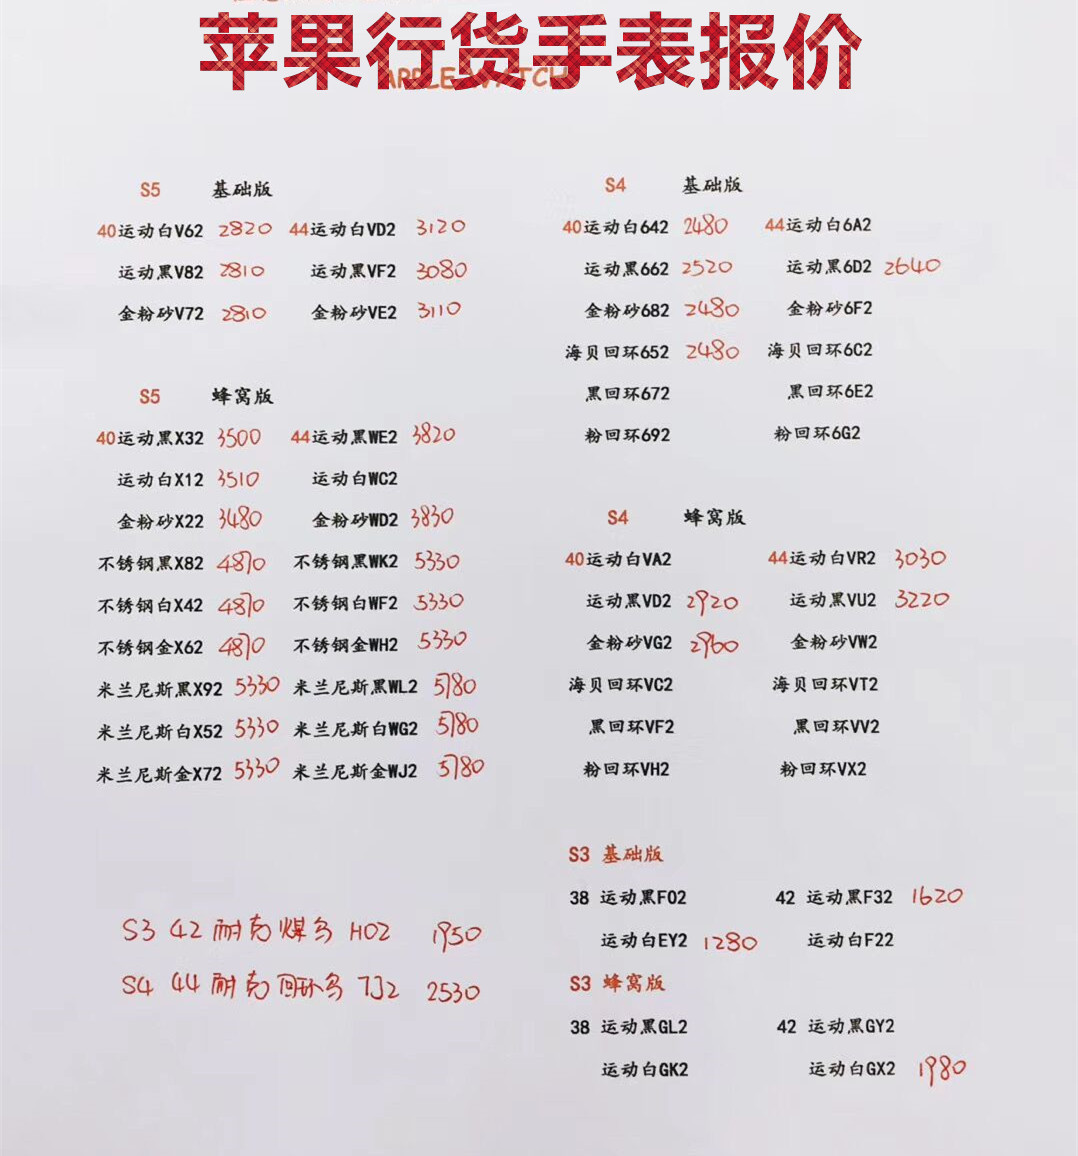 苹果行货手表报价
APPLE WATCH
S5 基础版
40运动白V62 2820 44运动白VD2 3120
运动黑V82 2810 运动黑VF2 3080
金粉砂V72 2810 金粉砂VE2 3110
S5 蜂窝版
40运动黑X32 3500 44运动黑WE2 3820
运动白X12 3510 运动白WC2
金粉砂X22 3480 金粉砂WD2 3830
不锈钢黑X82 4870 不锈钢黑WK2 5330
不锈钢白X42 4870 不锈钢白WF2 5330
不锈钢金X62 4870 不锈钢金WH2 5330
米兰尼斯黑X92 5330 米兰尼斯黑WL2 5780
米兰尼斯白X52 5330 米兰尼斯白WG2 5780
米兰尼斯金X72 5330 米兰尼斯金WJ2 5780
S3 42 耐克煤多 H02 1950
S4 44 耐克回环多 7J2 2530
S4 基础版
40运动白642 2480 44运动白6A2
运动黑662 2520 运动黑6D2 2640
金粉砂682 2480 金粉砂6F2
海贝回环652 2480 海贝回环6C2
黑回环672 黑回环6E2
粉回环692 粉回环6G2
S4 蜂窝版
40运动白VA2 44运动白VR2 3030
运动黑VD2 2920 运动黑VU2 3220
金粉砂VG2 2960 金粉砂VW2
海贝回环VC2 海贝回环VT2
黑回环VF2 黑回环VV2
粉回环VH2 粉回环VX2
S3 基础版
38 运动黑F02 42 运动黑F32 1620
运动白EY2 1280 运动白F22
S3 蜂窝版
38 运动黑GL2 42 运动黑GY2
运动白GK2 运动白GX2 1980